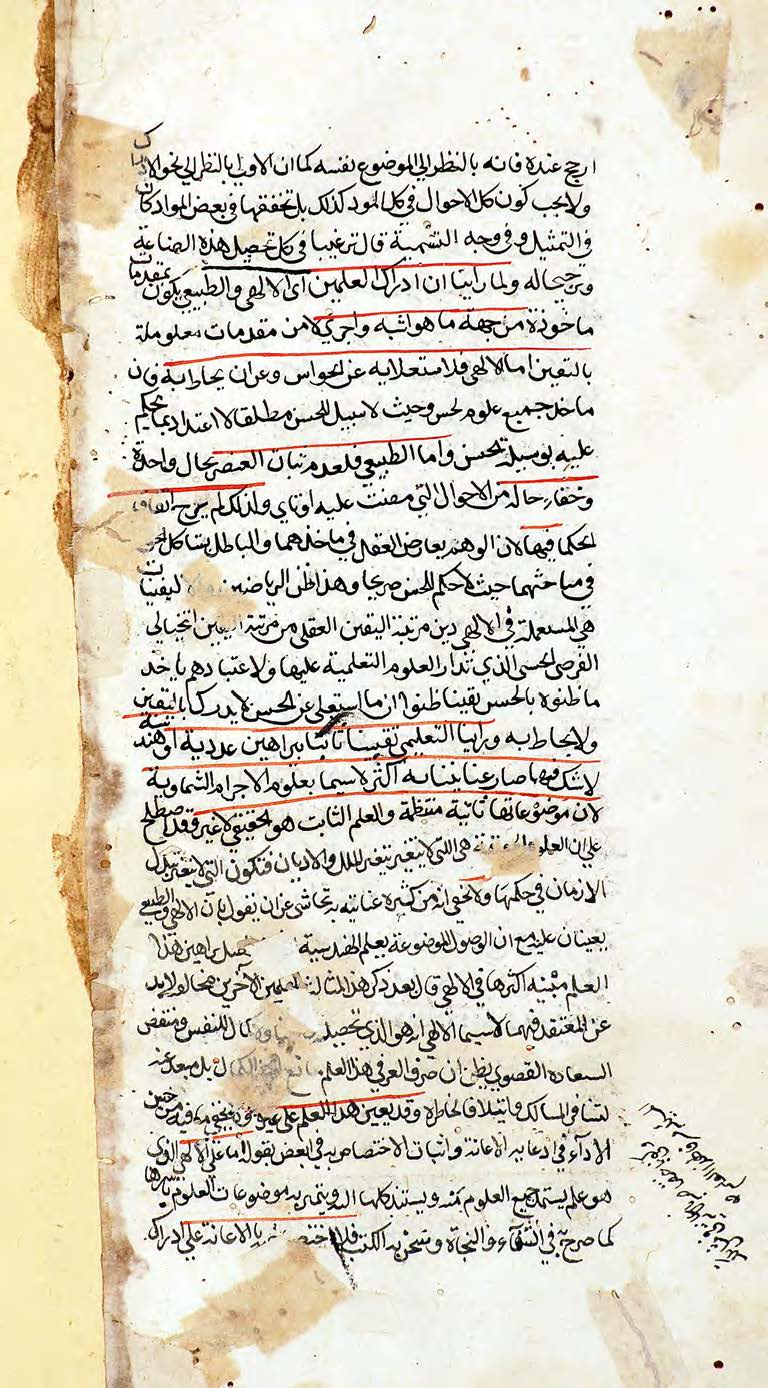 ارجح عنده فانه بالنظر الي الموضوع نفسه كما ان الاول بالنظر الي نحو الادراك
ولا يجب كون كل الاحوال في كل المواد كذلك بل تحققها في بعض المواد كان
في التمثيل وفي وجه التسمية قال ترغيبا في كل تحصيل هذه الصناعة
وترجيحا له ولما راينا ان ادراك العلمين اى الالهي والطبيعي يكون بمقدمات
ماخوذة من جهة ما هو اشبه واحرى لا من مقدمات معلوملة
باليقين اما الالهي فلاستعلايه عن الحواس وعن ان يحاط به فان
ماخذ جميع علومه لحس وحيث لا سبيل للحس مطلقا لا اعتداد بما يحكم
عليه بوسيلة الحس واما الطبيعي فلعدم ثبات العنصر بحال واحدة
وخفاء حاله من الاحوال التي مضت عليه او تاي ولذلك لم يرج اتفاق
الحكما فيها لان الوهم يعارض العقل في ماخذهما والباطل يشاكل الحق
في مباحثهما حيث لا حكم للحس صريحا وهذا ظن الرياضيين اليقينيات
هي المستعملة في الالهي دين مرتبة اليقين العقلي من مرتبة اليقين الخيالي
الفرضي الحسي الذي تدار العلوم التعلمية عليها ولاعتيادهم باخذ
ما ظنوه بالحس يقينا ظنوا ان ما استعلى عن الحس لا يدرك باليقين
ولا يحاط به وراينا التعليمي يقينا ثابتا ببراهين عددية او هندسية
لا شك فيها صار عنايتنا به اكثر لا سيما بعلوم الاجرام السماوية
لان موضوعاتها ثابتة منتظمة والعلم الثابت هو الحقيقي لا غير وقد اصطلح
علي ان العلوم الحقيقية هي التي لا يتغير بتغير الملل والاديان فتكون التي لا يتغير بتبدل
الازمان في حكمها ولا يخفي انه من كثرة عنايته به تحاشى عن ان يقول بان الالهي والطبيعي
يعينان عليه مع ان الاصول الموضوعة بعلم الهندسية براهين هذا
العلم مبينه اكثرها في الالهي قال بعد ذكر هذا المثالة العلمين الآخرين فحاله لا بد
عن المعتقد فيهما لا سيما الالهي انه هو الذي تحصيله كمال للنفس ومنتقض
السعادة القصوي يظن ان صرف العمر في هذا العلم مانع لهذا الكمال بل مبعد عنه
لتنافر المسالك وايتلاف الخاطرة وقد يعين هذا العلم علي غيره ولا يخفي ما فيه من حسن
الاداء في ادعايه الاعانة واثبات الاختصاص به في البعض بقوله اما علي الالهي الذي
هو علم يستمد جميع العلوم منه ويستند كلها اليه ويتميز به موضوعات العلوم باسرها
كما صرح به في الشفاء والنجاة وتسخر به الكتب فلا بالاعانة علي ادراك